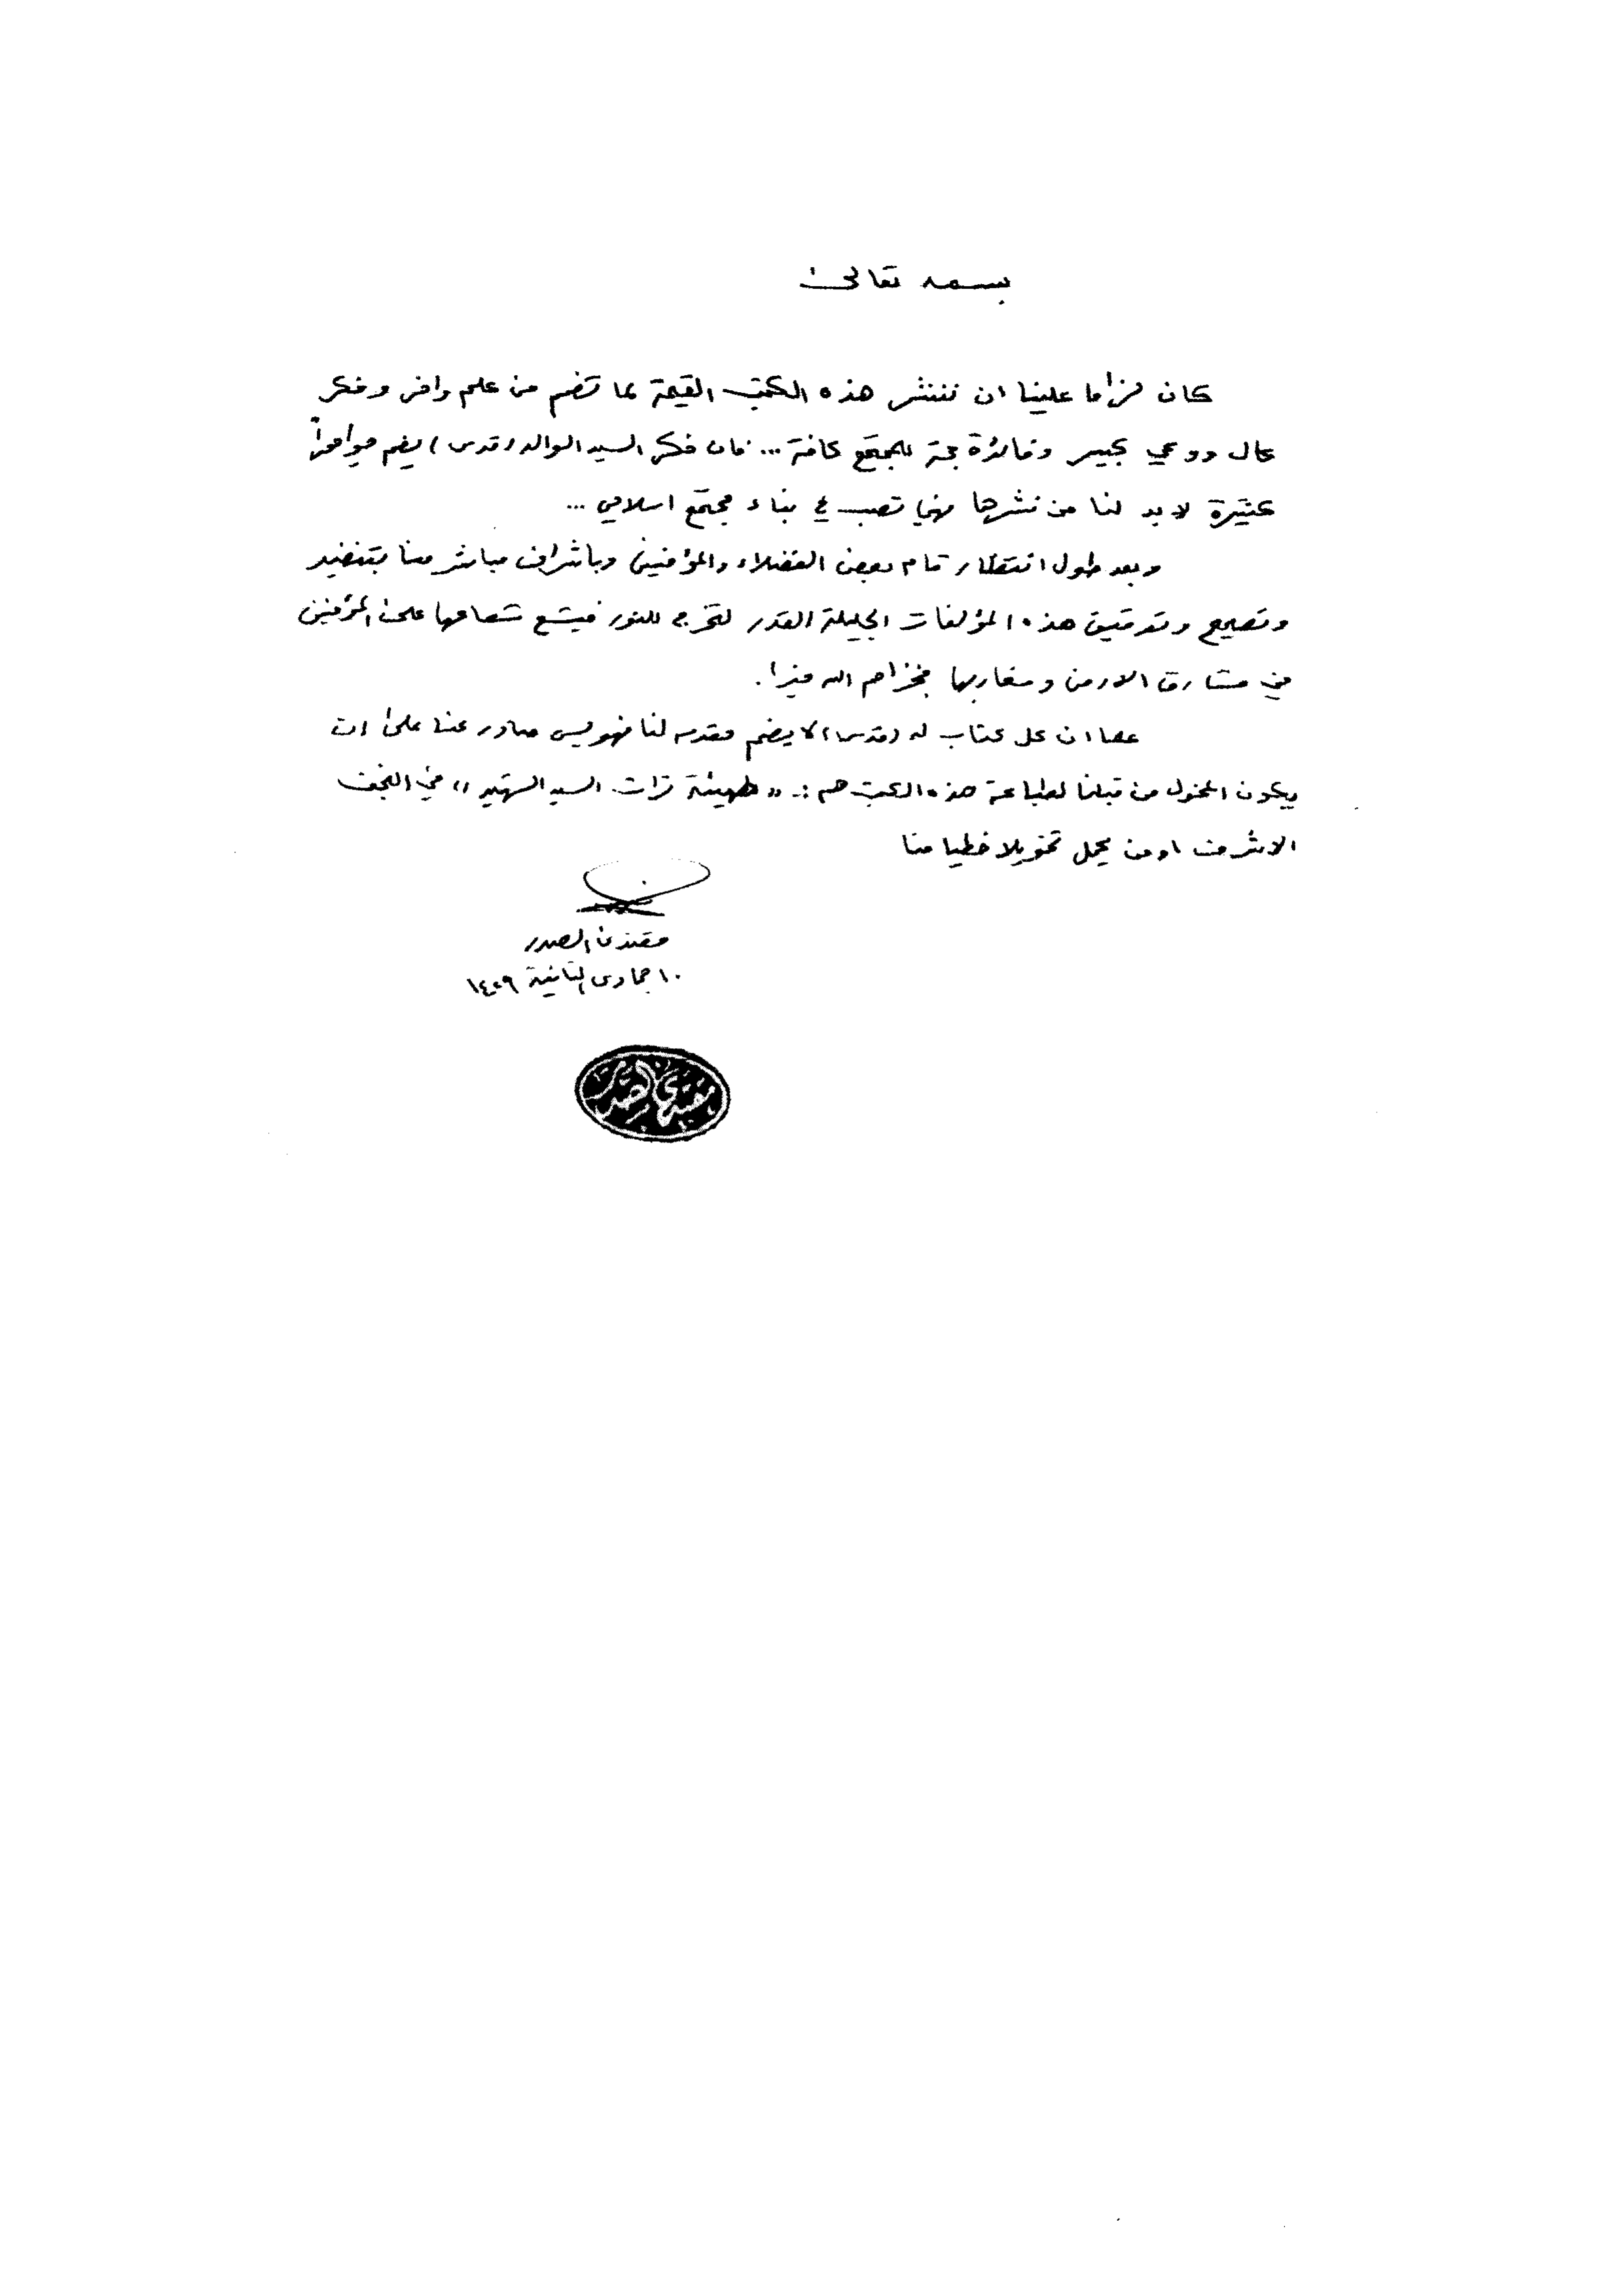 بسمه تعالى
كان لزاما علينا ان ننشر هذه الكتب القيمة لما تضم من علم وافر وفكر
عال ووعي كبير وفائدة جمة للمجتمع كافة ... فان فكر السيد الوالد (قدس) يضم
كثيرة لا بد لنا من نشرها فهي تصب في بناء مجتمع اسلامي ...
وبعد طول انتظار قام بعض الفضلاء والمؤمنين وباشراف مباشر منا بتنضيد
وتصحيح وتدقيق هذه المؤلفات الجليلة القدر لتخرج للنور فيشع شعاعها على المؤمنين
في مشارق الارض ومغاربها فجزاهم الله خيرا.
كما ان كل كتاب له (قدس) لا يضم مقدمه لنا فهو ليس صادر عنا على ان
يكون المخول من قبلنا لطباعة هذه الكتب هم :- «هيئة تراث السيد الشهيد» في النجف
الاشرف او من يحمل تخويلا خطيا منا
مقتدى الصدر
١٠ جمادى الثانية ١٤٢٩
مقتدى الصدر